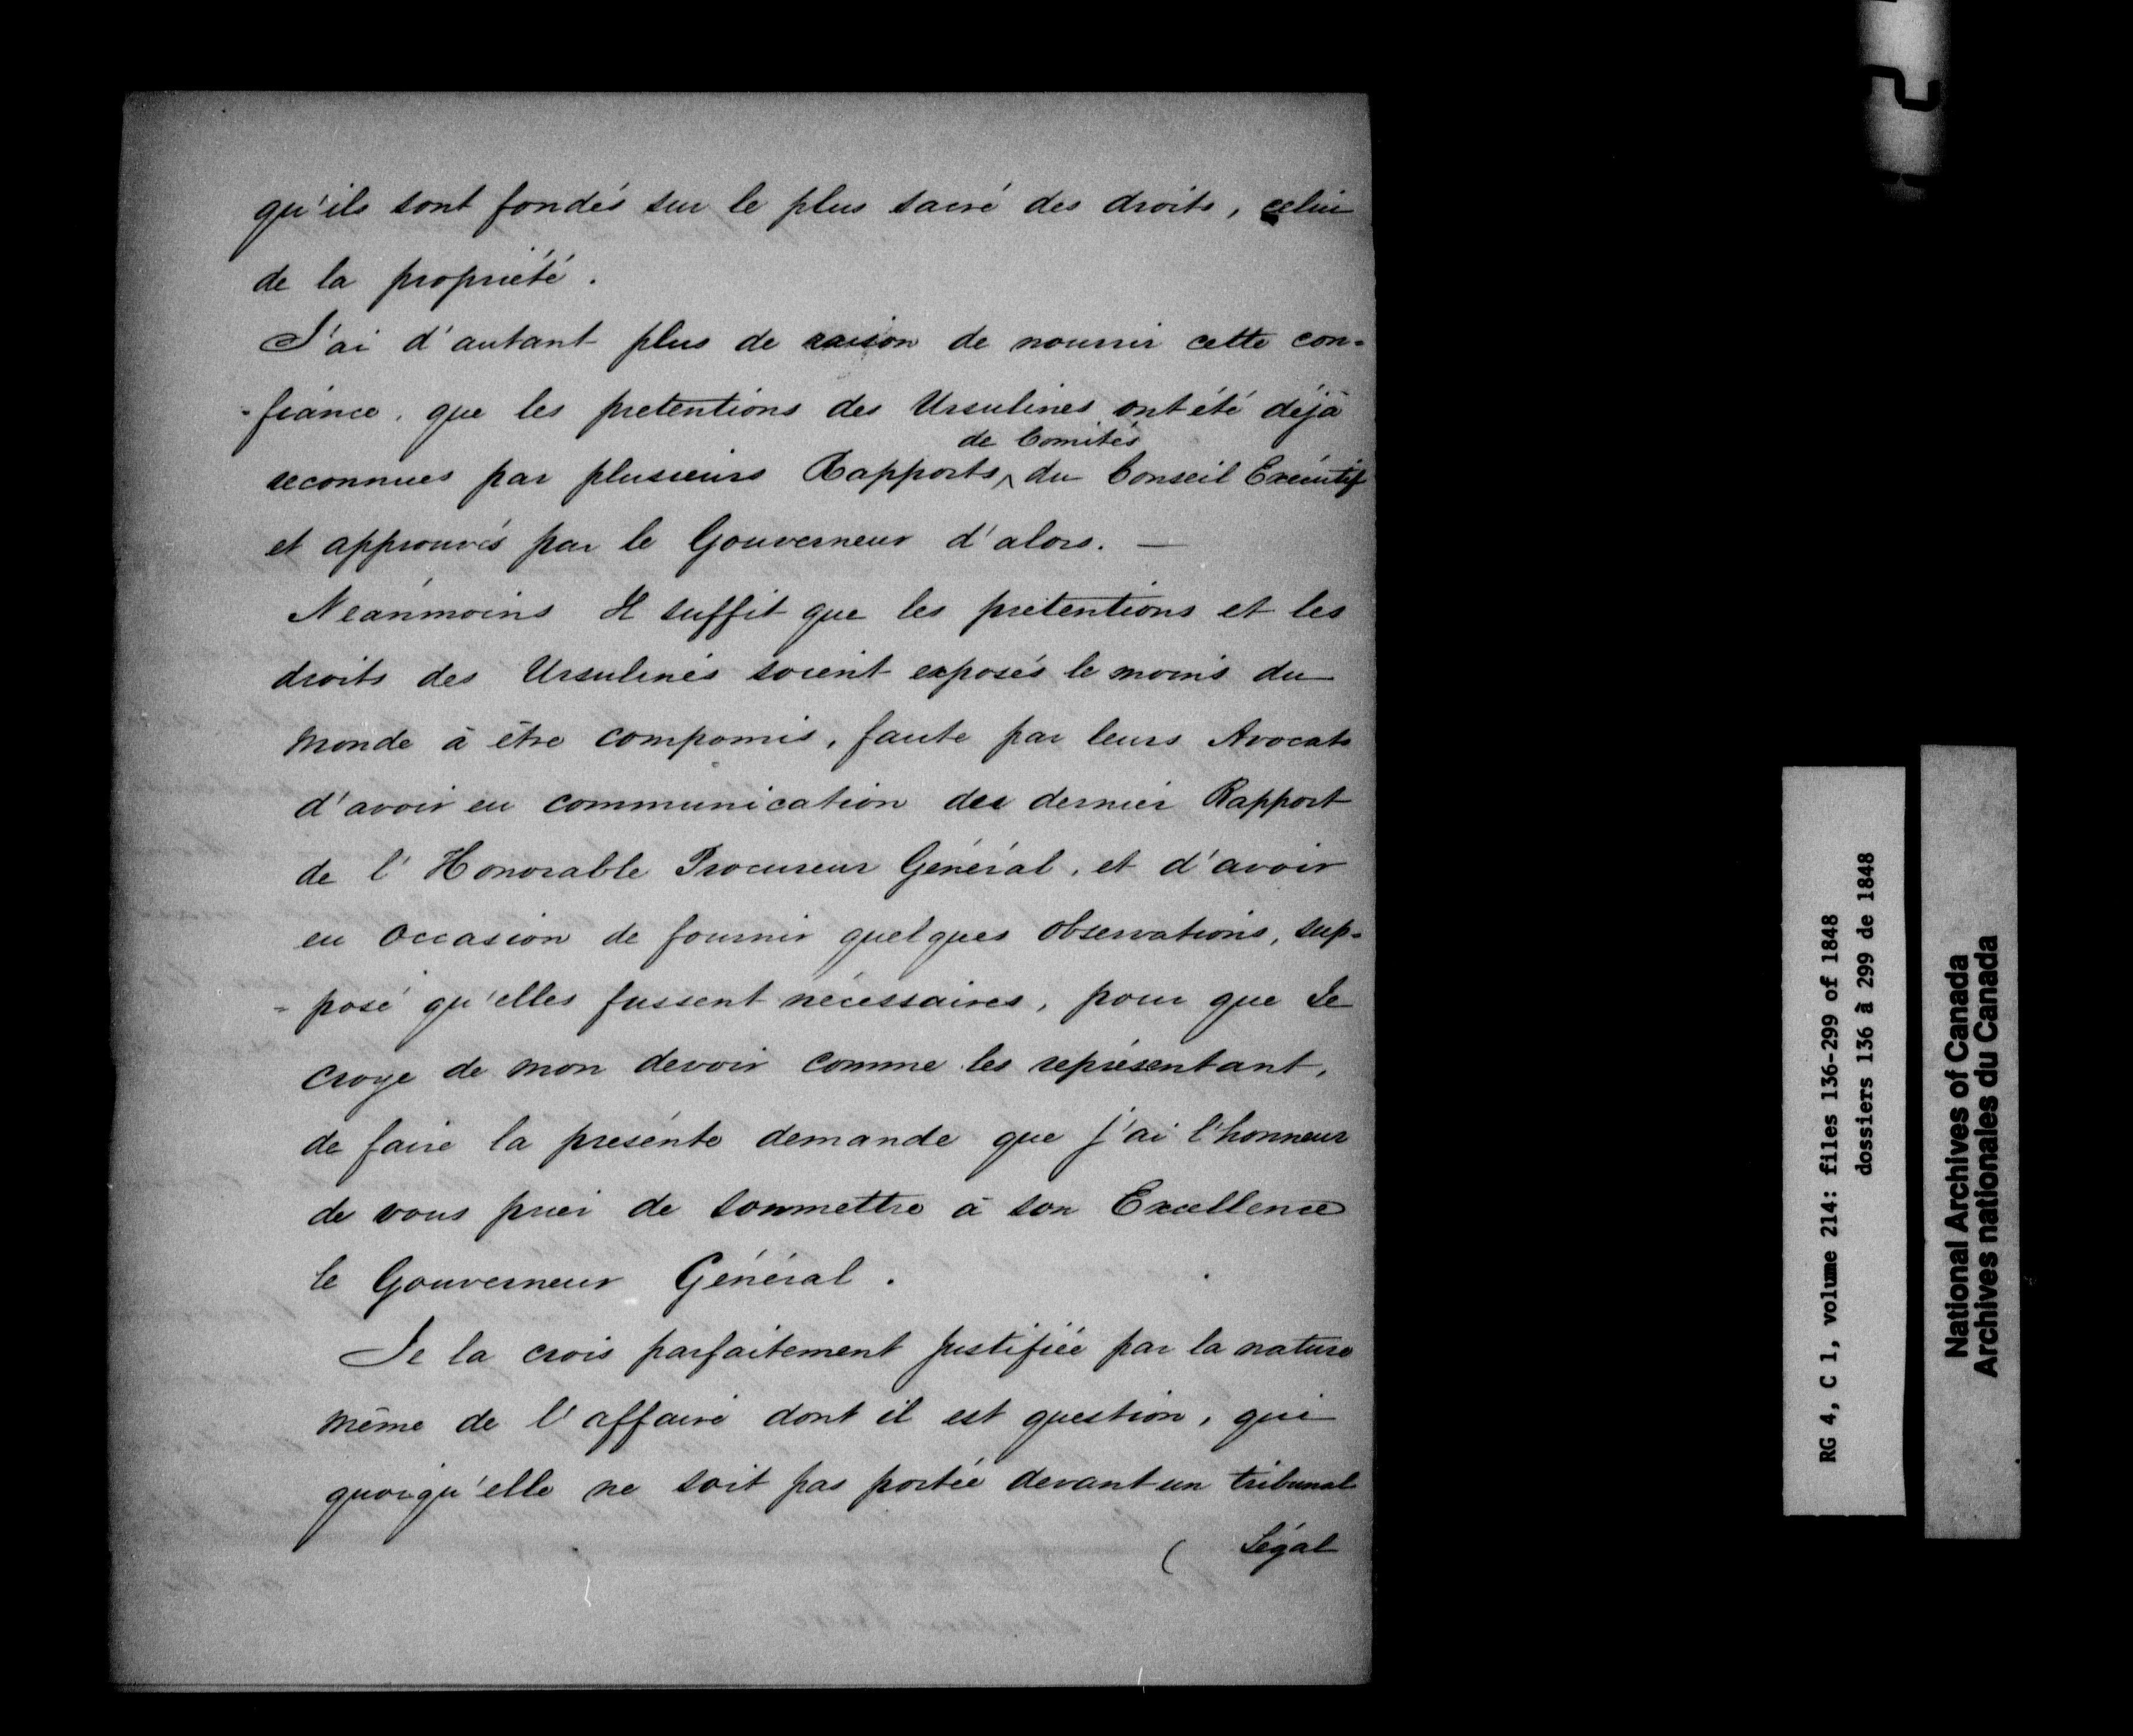 qu'ils sont fondés sur le plus sacré des droits, celui
de la propriété.
J'ai d'autant plus de raison de nourrir cette con-
-fiance, que les pretentions des Ursulines ont été déjà
de Comités
reconnues par plusieurs Rapports ^ du Conseil Exécutif
et approuvés par le Gouverneur d'alors. —
Néanmoins Il suffit que les prétentions et les
droits des Ursulines soient exposés le moins du
monde à être compomis, faute par leurs Avocats
d'avoir eu communication des dernier Rapport
de l'Honorable Procureur Général, et d'avoir
eu occasion de fournir quelques observations, sup-
-posé qu'elles fussent nécessaires, pour que Je
croye de mon devoir comme les représentant,
de faire la présente demande que j'ai l'honneur
de vous prier de soumettre à son Excellence
le Gouverneur Général.
Je la crois parfaitement justifiée par la nature
même de l'affaire dont il est question, qui
quoiqu'elle ne soit pas portée devant un tribunal
( Légal
RG 4, C 1, volume 214: files 136-299 of 1848
dossiers 136 à 299 de 1848
National Archives of Canada
Archives nationales du Canada